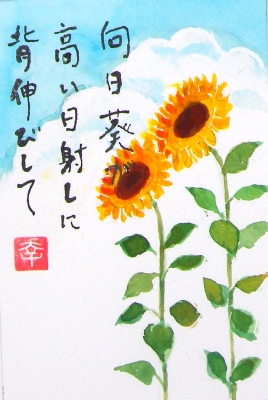 向日葵が
高い日射しに
背伸びして
幸